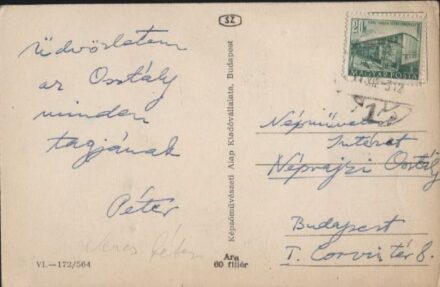 SZ
Üdvözletem
az Osztály
minden
tagjának
Péter
Veres Péter
VI.—172/564
Képzőművészeti Alap Kiadóvállalata, Budapest
Ára
60 fillér
20 f
MAGYAR POSTA
Népművelési
Intézet
Néprajzi Osztály
Budapest
I. Corvin tér 8.